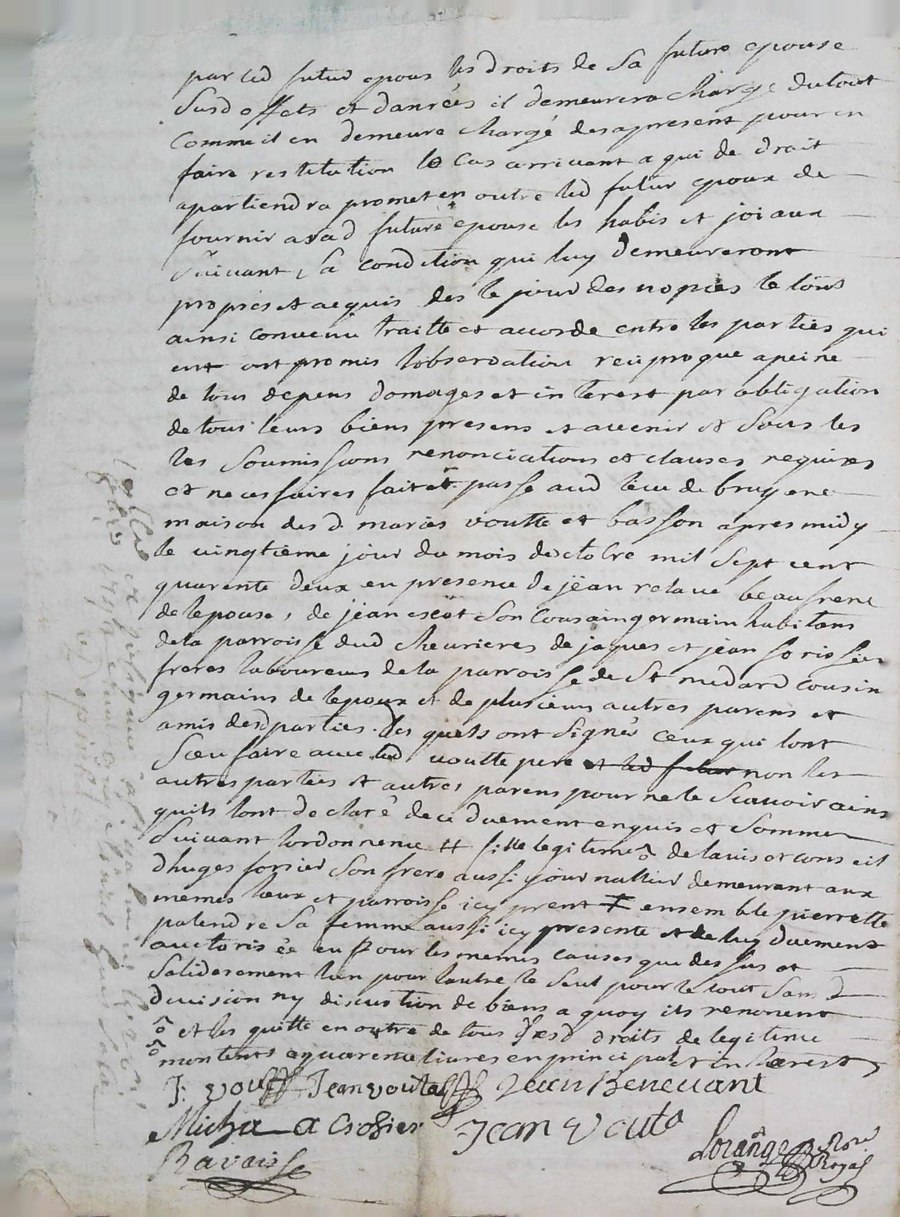 par led futur epous les droits de Sa future epouse
Susd effets et danrées il demeurera Charge du tout
Comme il en demeure Chargé des apresent pour en
faire restitution le Cas arrivant a qui de droit
apartiendra promet en outre led futur epoux de
fournir a sad future epouse les habis et joiaux
Suivant Sa condition qui luy demeureront
propres et aequis des le jour des nopces le tous
ainsi convenu traitte et accorde entre les parties qui
ont promis lobservation reciproque apeine
de tous depens domages et interest par obligation
de tous leurs biens presens et avenir et Sous les
les Soumissions renonciations et clauses requises
et necessaires fait et passe aud lieu de bruyere
maison des d mariés voutte et basson apres midy
le vingtième jour du mois doctobre mil Sept cent
quarente deux en presence de jean relave beaufrere
de lepouse, de jean escot Son Cousain germain habitans
de la parroisse dud Chevrieres de jaques et jean forissier
freres laboureurs de la parroisse de St medard cousin
germains de lepoux et de plusieurs autres parens et
amis desd parties. Les quels ont Signés Ceux qui lont
Sceu faire avec led voutte pere et led futur non les
autres parties et autres parens pour ne le Scavoir ains
quils lont declaré de ce duement enquis et Sommes
Suivant lordonnence # fille legitime de lavis et conseil
dhuges forisier Son frere aussi journallier demeurant aux
memes lieux et parroisse icy prent ensemble pierrette
palendre Sa femme aussi icy presente et de luy duement
auctorisée en Pour les memes causes que dessus et
Soliderement lun pour lautre le Seul pour le tout Sans
division ny discution de biens a quoy ils renoncent
et les quitte en outre de tous droits de legitime
montents a quarente livres en principal et interest
J: voutt Jean vouta Jean Benevant
Micha a Crosier Jean Vouta
Ravaisse Lorange Nore Royal